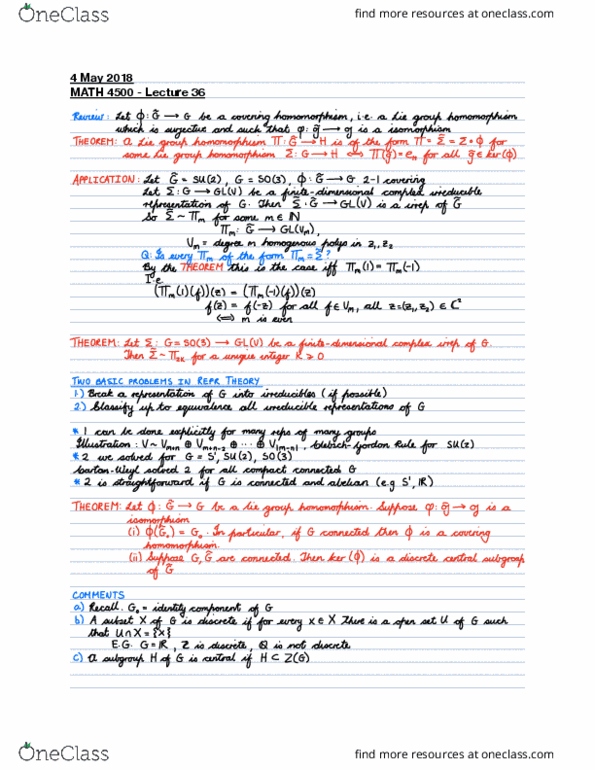 OneClass
find more resources at oneclass.com
4 May 2018
MATH 4500 - Lecture 36
Review: Let ϕ: G̃ → G be a covering homomorphism, i.e. a Lie group homomorphism
which is surjective and such that φ: g̃ → g is a isomorphism
THEOREM: A Lie group homomorphism Π: G̃ → H is of the form Π = Σ̃ = Σ∘ϕ for
some Lie group homomorphism Σ: G → H ⟺ Π(g̃) = e_H for all g̃ ∈ ker(ϕ)
APPLICATION: Let G̃ = SU(2), G = SO(3), ϕ: G̃ → G 2-1 covering
Let Σ: G → GL(V) be a finite-dimensional complex irreducible
representation of G. Then Σ̃: G̃ → GL(V) is a irep of G̃
So Σ̃ ~ Πm for some m ∈ ℕ
Πm: G̃ → GL(Vm),
Vm = degree m homogenous polys in z₁, z₂
Q: Is every Πm of the form Πm = Σ̃?
By the THEOREM this is the case iff Πm(1) = Πm(-1)
I.e
(Πm(1)(f))(z) = (Πm(-1)(f))(z)
f(z) = f(-z) for all f ∈ Vm, all z = (z₁, z₂) ∈ ℂ²
⟺ m is even
THEOREM: Let Σ: G = SO(3) → GL(V) be a finite-dimensional complex irep of G.
Then Σ̃ ~ Π2k for a unique integer k ≥ 0
TWO BASIC PROBLEMS IN REPR THEORY
1.) Break a representation of G into irreducibles (if possible)
2.) Classify up to equivalence all irreducible representations of G
* 1 can be done explicitly for many reps of many groups
Illustration: V ~ Vm+n ⊕ Vm+n-2 ⊕ ... ⊕ V|m-n|, Clebsch-Gordon Rule for SU(2)
* 2 we solved for G = S¹, SU(2), SO(3)
Cartan-Weyl solved 2 for all compact connected G
* 2 is straightforward if G is connected and abelian (e.g S¹, ℝ)
THEOREM: Let ϕ: G̃ → G be a Lie group homomorphism. Suppose φ: g̃ → g is a
isomorphism
(i) ϕ(G̃₀) = G₀. In particular, if G connected then ϕ is a covering
homomorphism.
(ii) Suppose G, G̃ are connected. Then ker(ϕ) is a discrete central subgroup
of G̃
COMMENTS
a) Recall. G₀ = identity component of G
b) A subset X of G is discrete if for every x ∈ X There is a open set U of G such
that U∩X = {x}
E.G. G = ℝ, ℤ is discrete, ℚ is not discrete
c) A subgroup H of G is central if H ⊂ Z(G)
OneClass
find more resources at oneclass.com